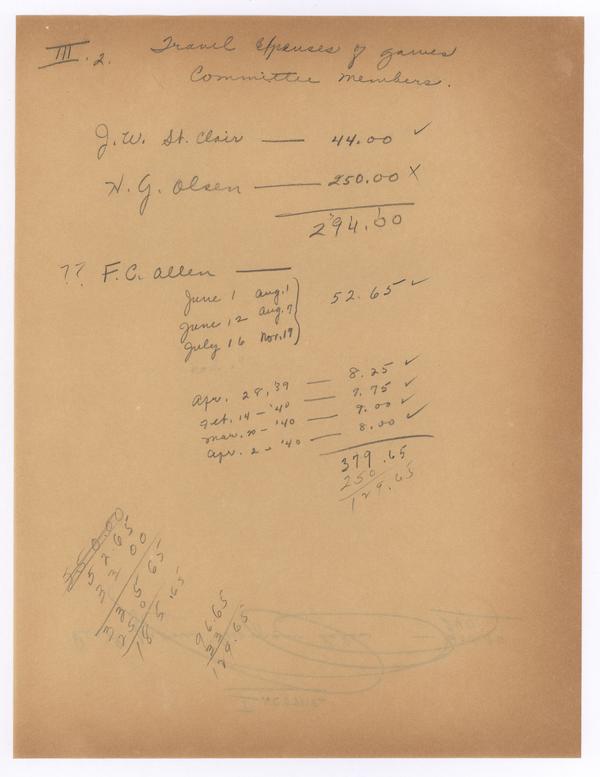 III. 2. Travel Expenses of games
Committee Members.
J.W. St. Clair — 44.00 ✓
H. G. Olsen — 250.00 X
294.00
?? F.C. Allen —
June 1 Aug. 1
June 12 Aug. 7
July 16 Nov. 19
52.65 ✓
Apr. 28, '39 — 8.25 ✓
14 - '40 — 7.75 ✓
Mar. 20 - '40 — 9.00 ✓
Apr. 2 - '40 — 8.00 ✓
379.65
250
129.65
52.65
96.65
33
129.65